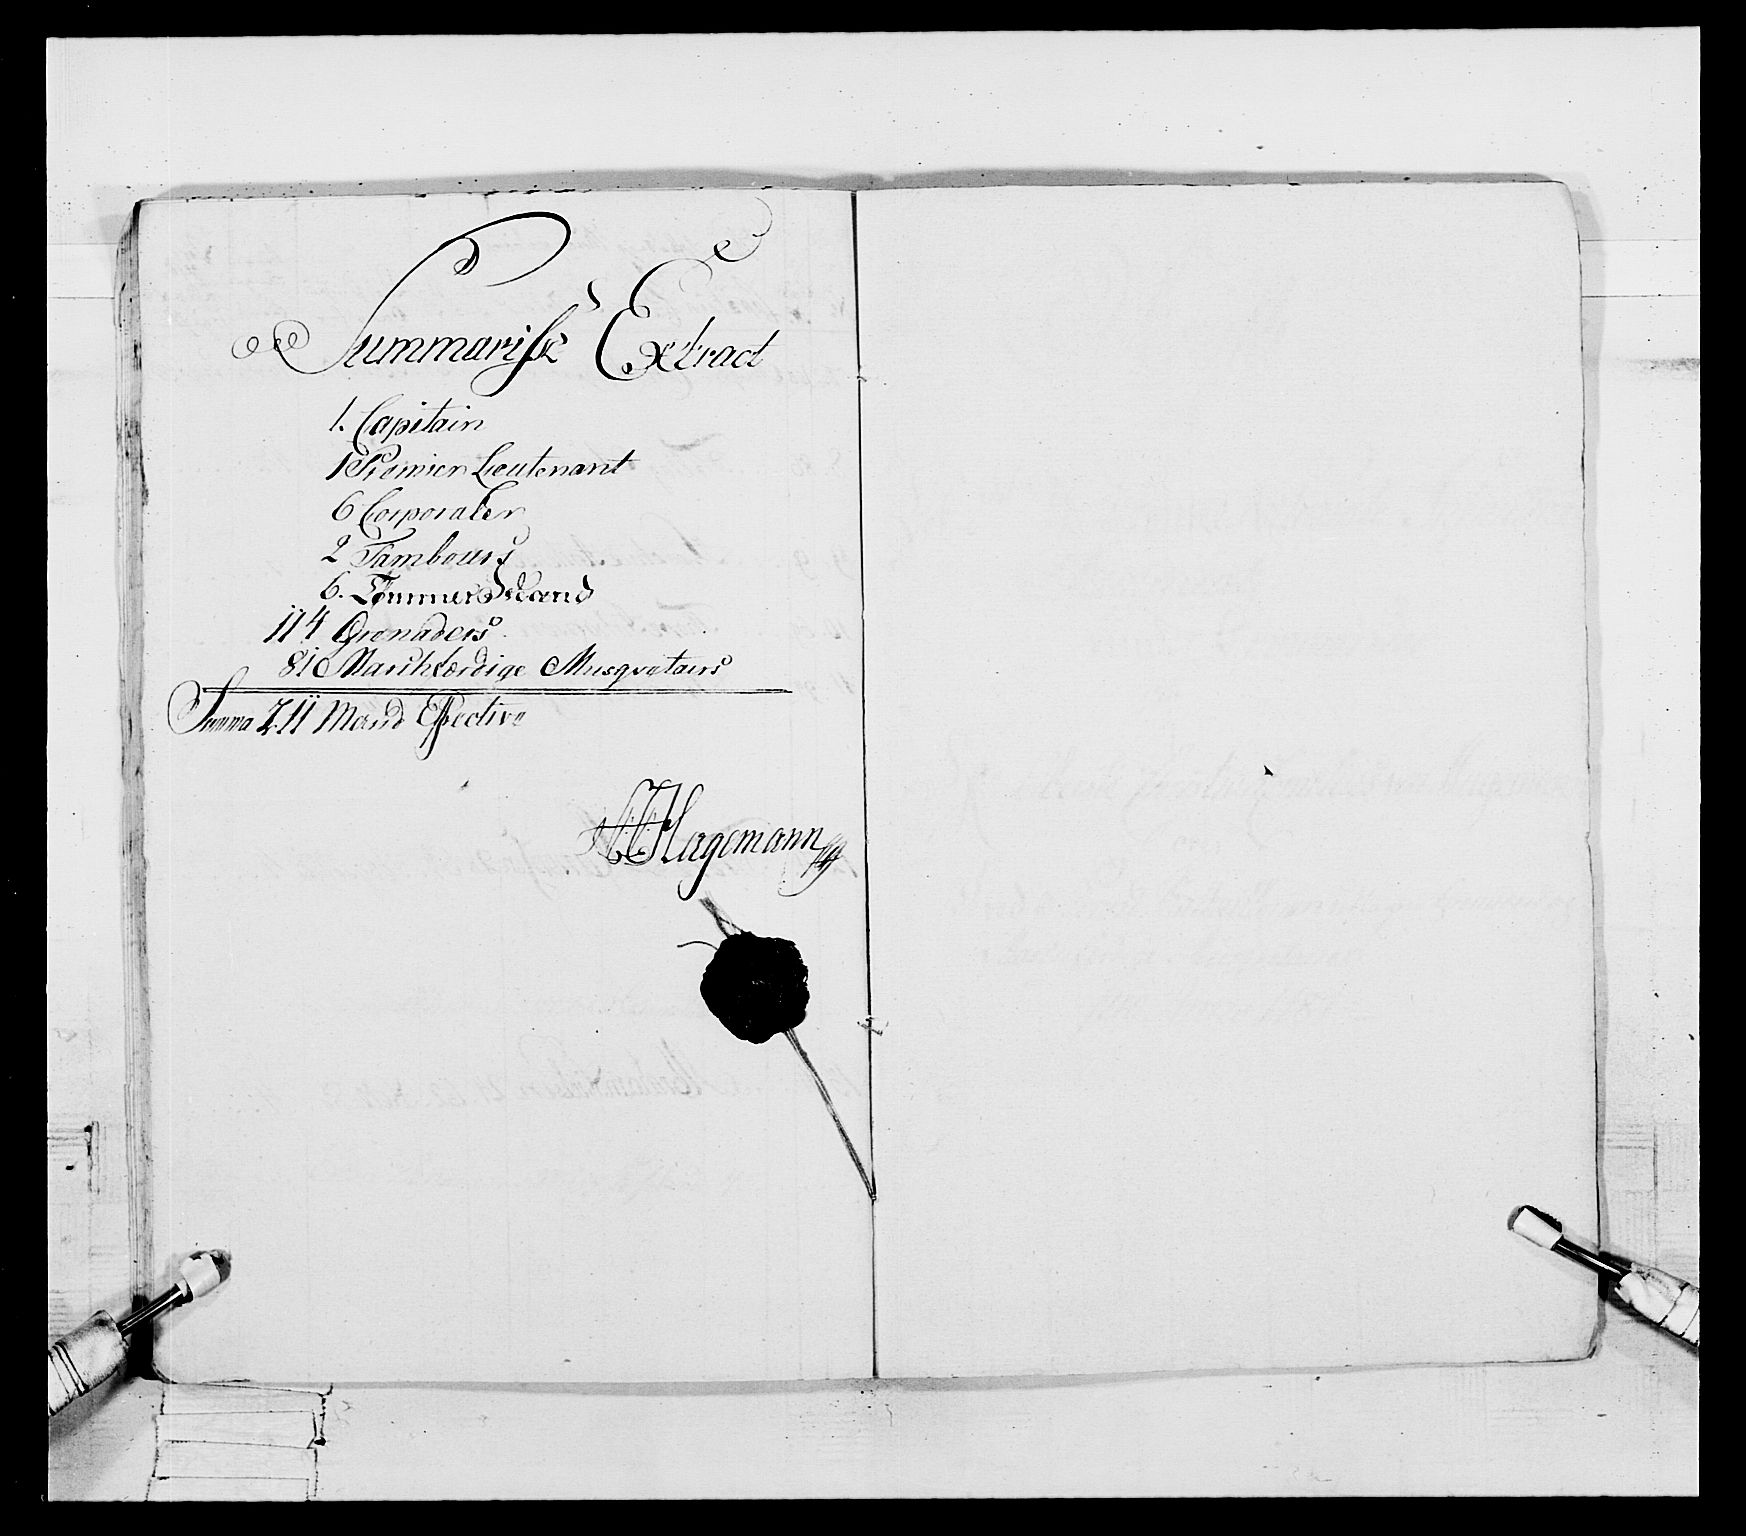 Summarisk Extract
1. Capitain
1 Premier Leutenant
6 Corporaler
2 Tambours
6. Tømmermænd
114 Grenaders
81 Marschfærdige Musqvetairs
Summa 211 Mand Effective
Hagemann